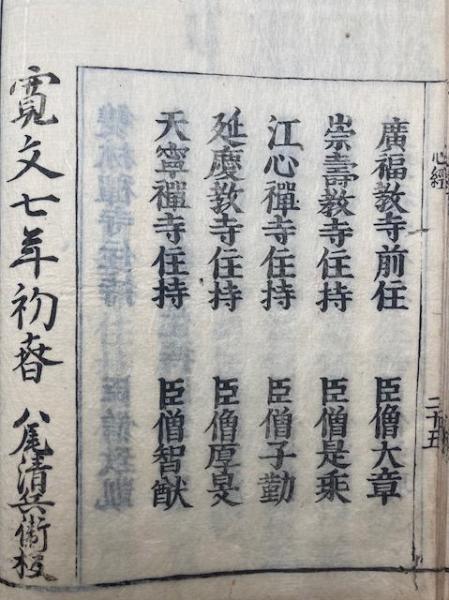 心經
二十五
廣福教寺前住 臣僧大章
崇壽教寺住持 臣僧是乘
江心禪寺住持 臣僧子勤
延慶教寺住持 臣僧厚
天寧禪寺住持 臣僧智猷
寛文七年初春 八尾清兵衛板